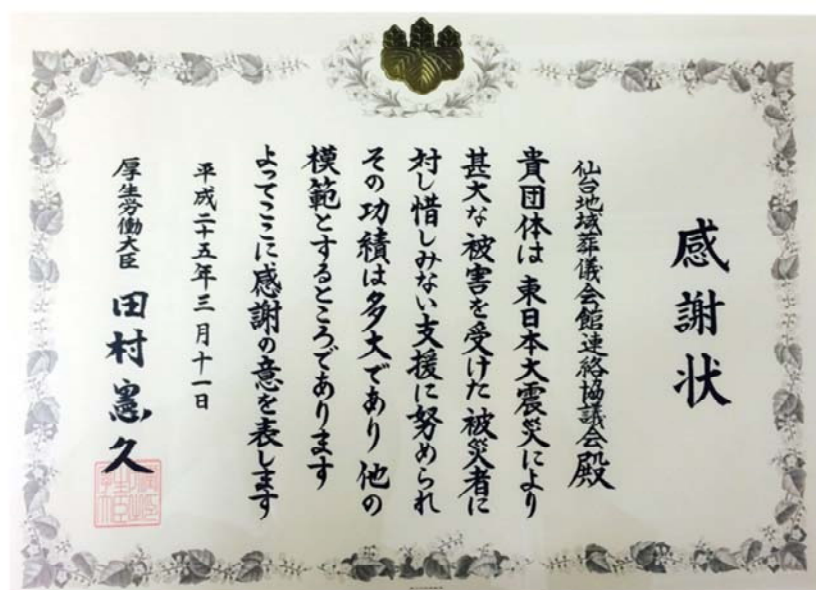 感謝状
仙台地域葬儀会館連絡協議会殿
貴団体は東日本大震災により
甚大な被害を受けた被災者に
対し惜しみない支援に努められ
その功績は多大であり他の
模範とするところであります
よってここに感謝の意を表します
平成二十五年三月十一日
厚生労働大臣 田村憲久